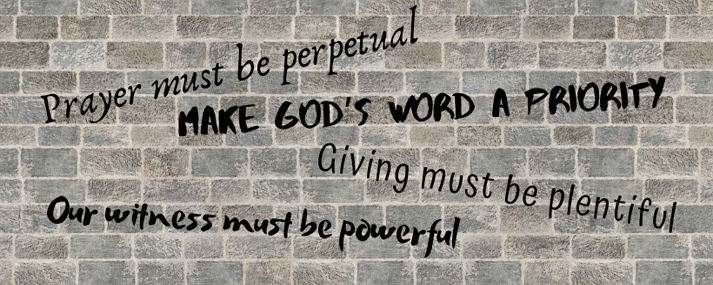 Prayer must be perpetual
MAKE GOD'S WORD A PRIORITY
Giving must be plentiful
Our witness must be powerful